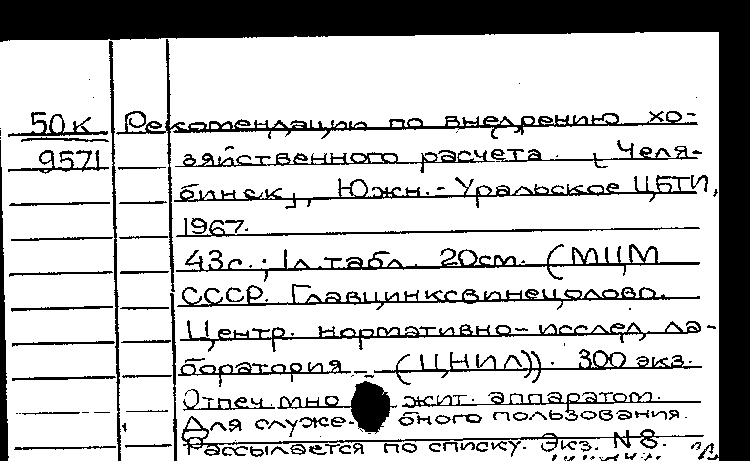 50к Рекомендации по внедрению хо-
9571 зяйственного расчета. [Челя-
бинск], Южн.-Уральское ЦБТИ,
1967.
43с.; 1л.табл. 20см. (МЦМ
СССР. Главцинксвинецолово.
Центр. нормативно-исслед. ла-
боратория (ЦНИЛ)). 300 экз.
Отпеч. мно жит. аппаратом.
Для служе- бного пользования.
Рассылается по списку. Экз. N8.